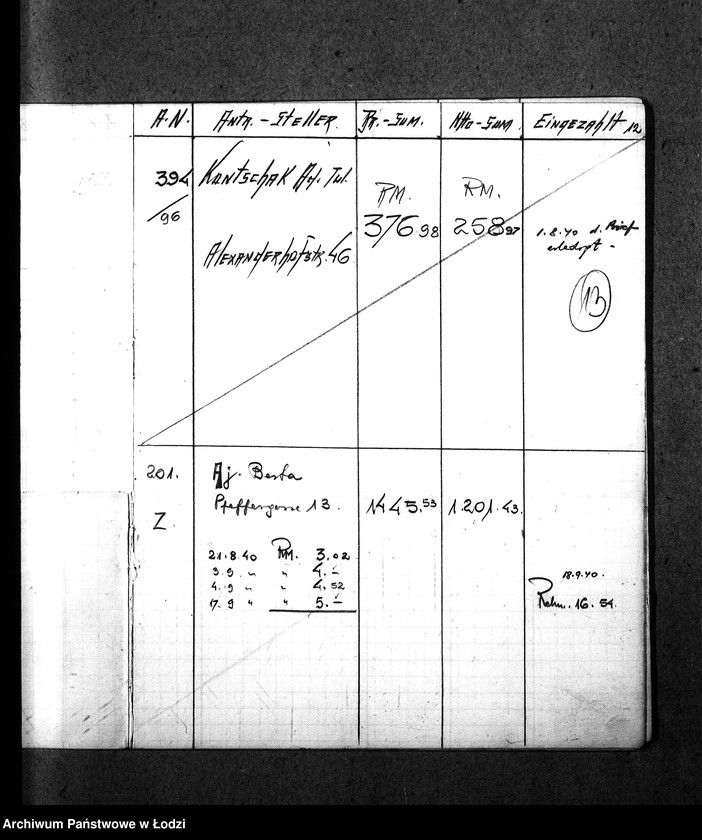 A.N. Antr.-Steller. Br.-Sum. Ntto-Sum Eingezahlt 12
394 Kontschak
/96
RM. RM.
376.98 258.97
Alexanderhofstr. 46
1.8.40 d.
13
201. Aj. Berta
Pfeffergasse 13. 1445.53 1.201.43.
Z
21.8.40 RM. 3.02
3.9 " " 4.-
4.9 " " 4.52
17.9 " " 5.-
18.9.40.
16.54.
Archiwum Państwowe w Łodzi